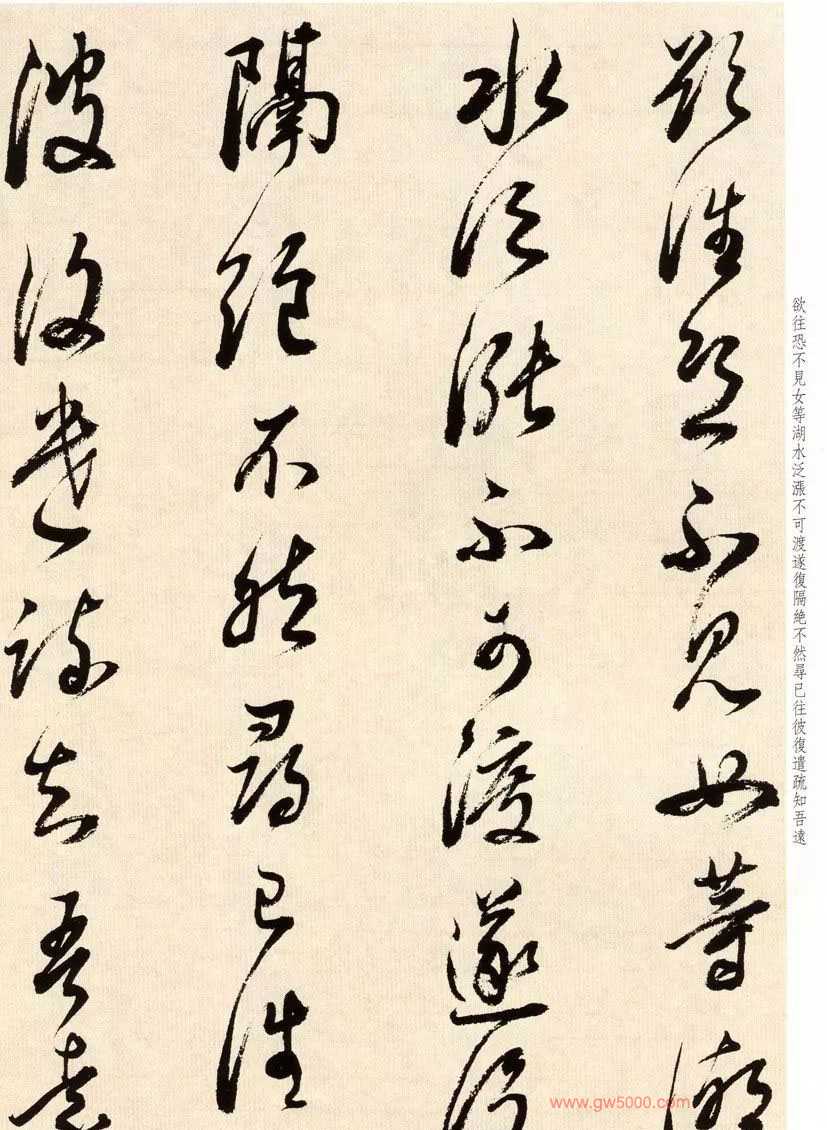 欲往恐不見女等湖
水泛漲不可渡遂復
隔絶不然尋已往
彼復遣疏知吾遠
欲往恐不見女等湖水泛漲不可渡遂復隔絶不然尋已往彼復遣疏知吾遠
www.gw5000.com